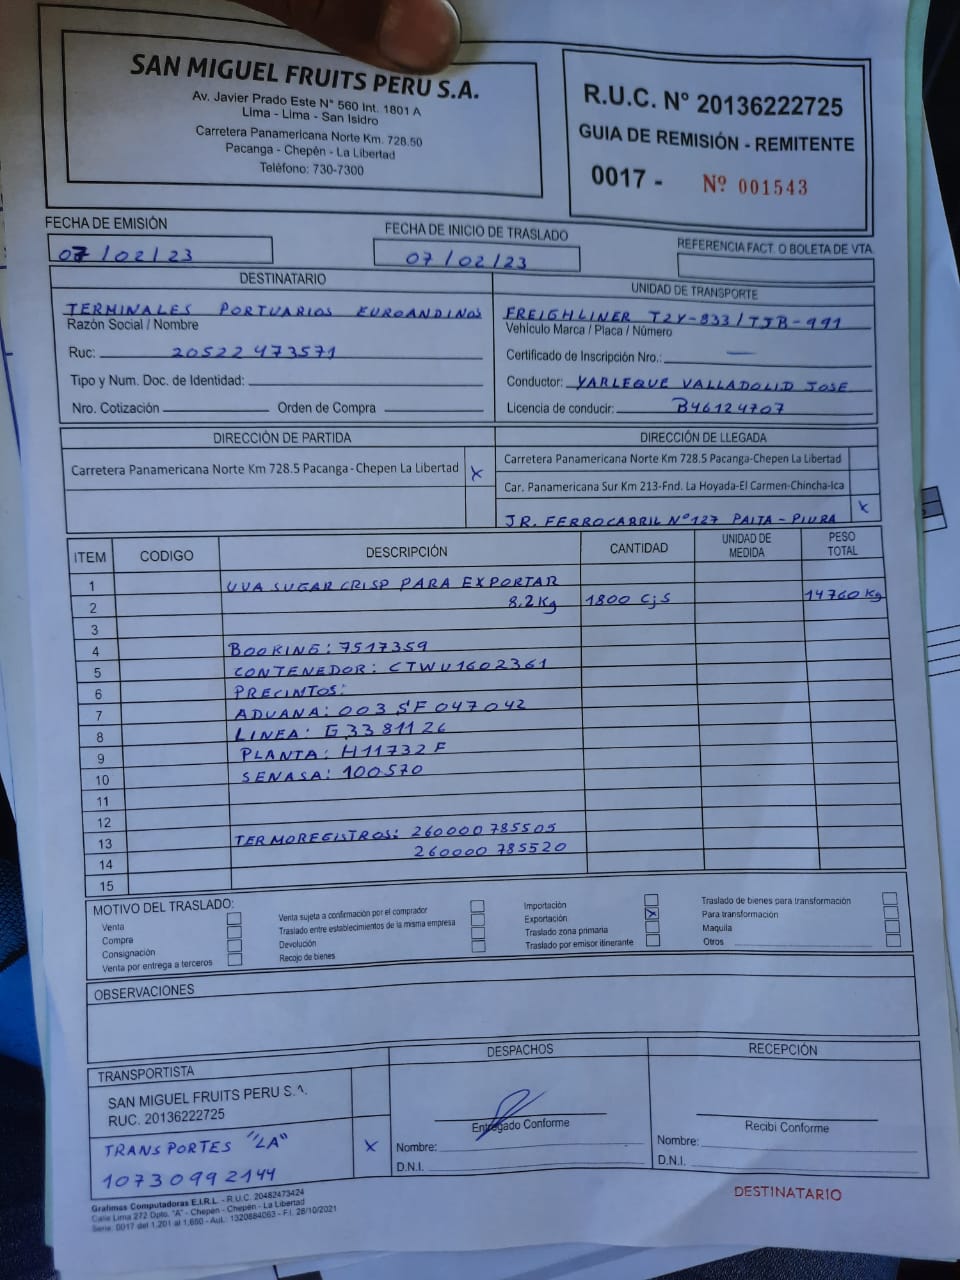 SAN MIGUEL FRUITS PERU S.A.
Av. Javier Prado Este N° 560 Int. 1801 A
Lima - Lima - San Isidro
Carretera Panamericana Norte Km. 728.50
Pacanga - Chepén - La Libertad
Teléfono: 730-7300
R.U.C. N° 20136222725
GUIA DE REMISIÓN - REMITENTE
0017 - Nº 001543
FECHA DE EMISIÓN
07/02/23
FECHA DE INICIO DE TRASLADO
07/02/23
REFERENCIA FACT. O BOLETA DE VTA.
DESTINATARIO
TERMINALES PORTUARIOS EUROANDINOS
Razón Social / Nombre
Ruc: 20522473571
Tipo y Num. Doc. de Identidad:
Nro. Cotización Orden de Compra
UNIDAD DE TRANSPORTE
FREIGHLINER T2Y-833/TJB-991
Vehículo Marca / Placa / Número
Certificado de Inscripción Nro.: —
Conductor: YARLEQUE VALLADOLID JOSE
Licencia de conducir: B46124707
DIRECCIÓN DE PARTIDA
Carretera Panamericana Norte Km 728.5 Pacanga-Chepen La Libertad X
DIRECCIÓN DE LLEGADA
Carretera Panamericana Norte Km 728.5 Pacanga-Chepen La Libertad
Car. Panamericana Sur Km 213-Fnd. La Hoyada-El Carmen-Chincha-Ica
JR. FERROCARRIL N°127 PAITA - PIURA X
ITEM CODIGO DESCRIPCIÓN CANTIDAD UNIDAD DE MEDIDA PESO TOTAL
1 UVA SUGAR CRISP PARA EXPORTAR
2 8.2Kg 1800 CjS 14760 Kg
3
4 BOOKING: 7517359
5 CONTENEDOR: CTWU1602361
6 PRECINTOS:
7 ADUANA: 003 SF 047042
8 LINEA: G3381126
9 PLANTA: H11732F
10 SENASA: 100570
11
12
13 TERMOREGISTROS: 260000785505
14 260000785520
15
MOTIVO DEL TRASLADO:
Venta
Compra
Consignación
Venta por entrega a terceros
Venta sujeta a confirmación por el comprador
Traslado entre establecimientos de la misma empresa
Devolución
Recojo de bienes
Importación
Exportación X
Traslado zona primaria
Traslado por emisor itinerante
Traslado de bienes para transformación
Para transformación
Maquila
Otros
OBSERVACIONES
TRANSPORTISTA
SAN MIGUEL FRUITS PERU S.A.
RUC. 20136222725
TRANSPORTES "LA" X
10730992144
DESPACHOS
Entregado Conforme
Nombre:
D.N.I.
RECEPCIÓN
Recibí Conforme
Nombre:
D.N.I.
Grafimas Computadoras E.I.R.L. - R.U.C. 20482473424
Calle Lima 272 Dpto. "A" - Chepén - Chepén - La Libertad
Serie: 0017 del 1,201 al 1,650 - Aut.: 1320884063 - F.I. 28/10/2021
DESTINATARIO